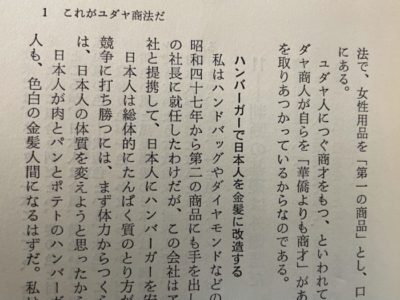 1 これがユダヤ商法だ
法で、女性用品を「第一の商品」とし、口
にある。
ユダヤ人につぐ商才をもつ、といわれて
ダヤ商人が自らを「華僑よりも商才」があ
を取りあつかっているからなのである。
ハンバーガーで日本人を金髪に改造する
私はハンドバッグやダイヤモンドなどの
昭和四十七年から第二の商品にも手を出し
の社長に就任したわけだが、この会社はア
社と提携して、日本人にハンバーガーを安
日本人は総体的にたんぱく質のとり方が
競争に打ち勝つには、まず体力からつくら
は、日本人の体質を変えようと思ったから
日本人が肉とパンとポテトのハンバーガ
人も、色白の金髪人間になるはずだ。私は